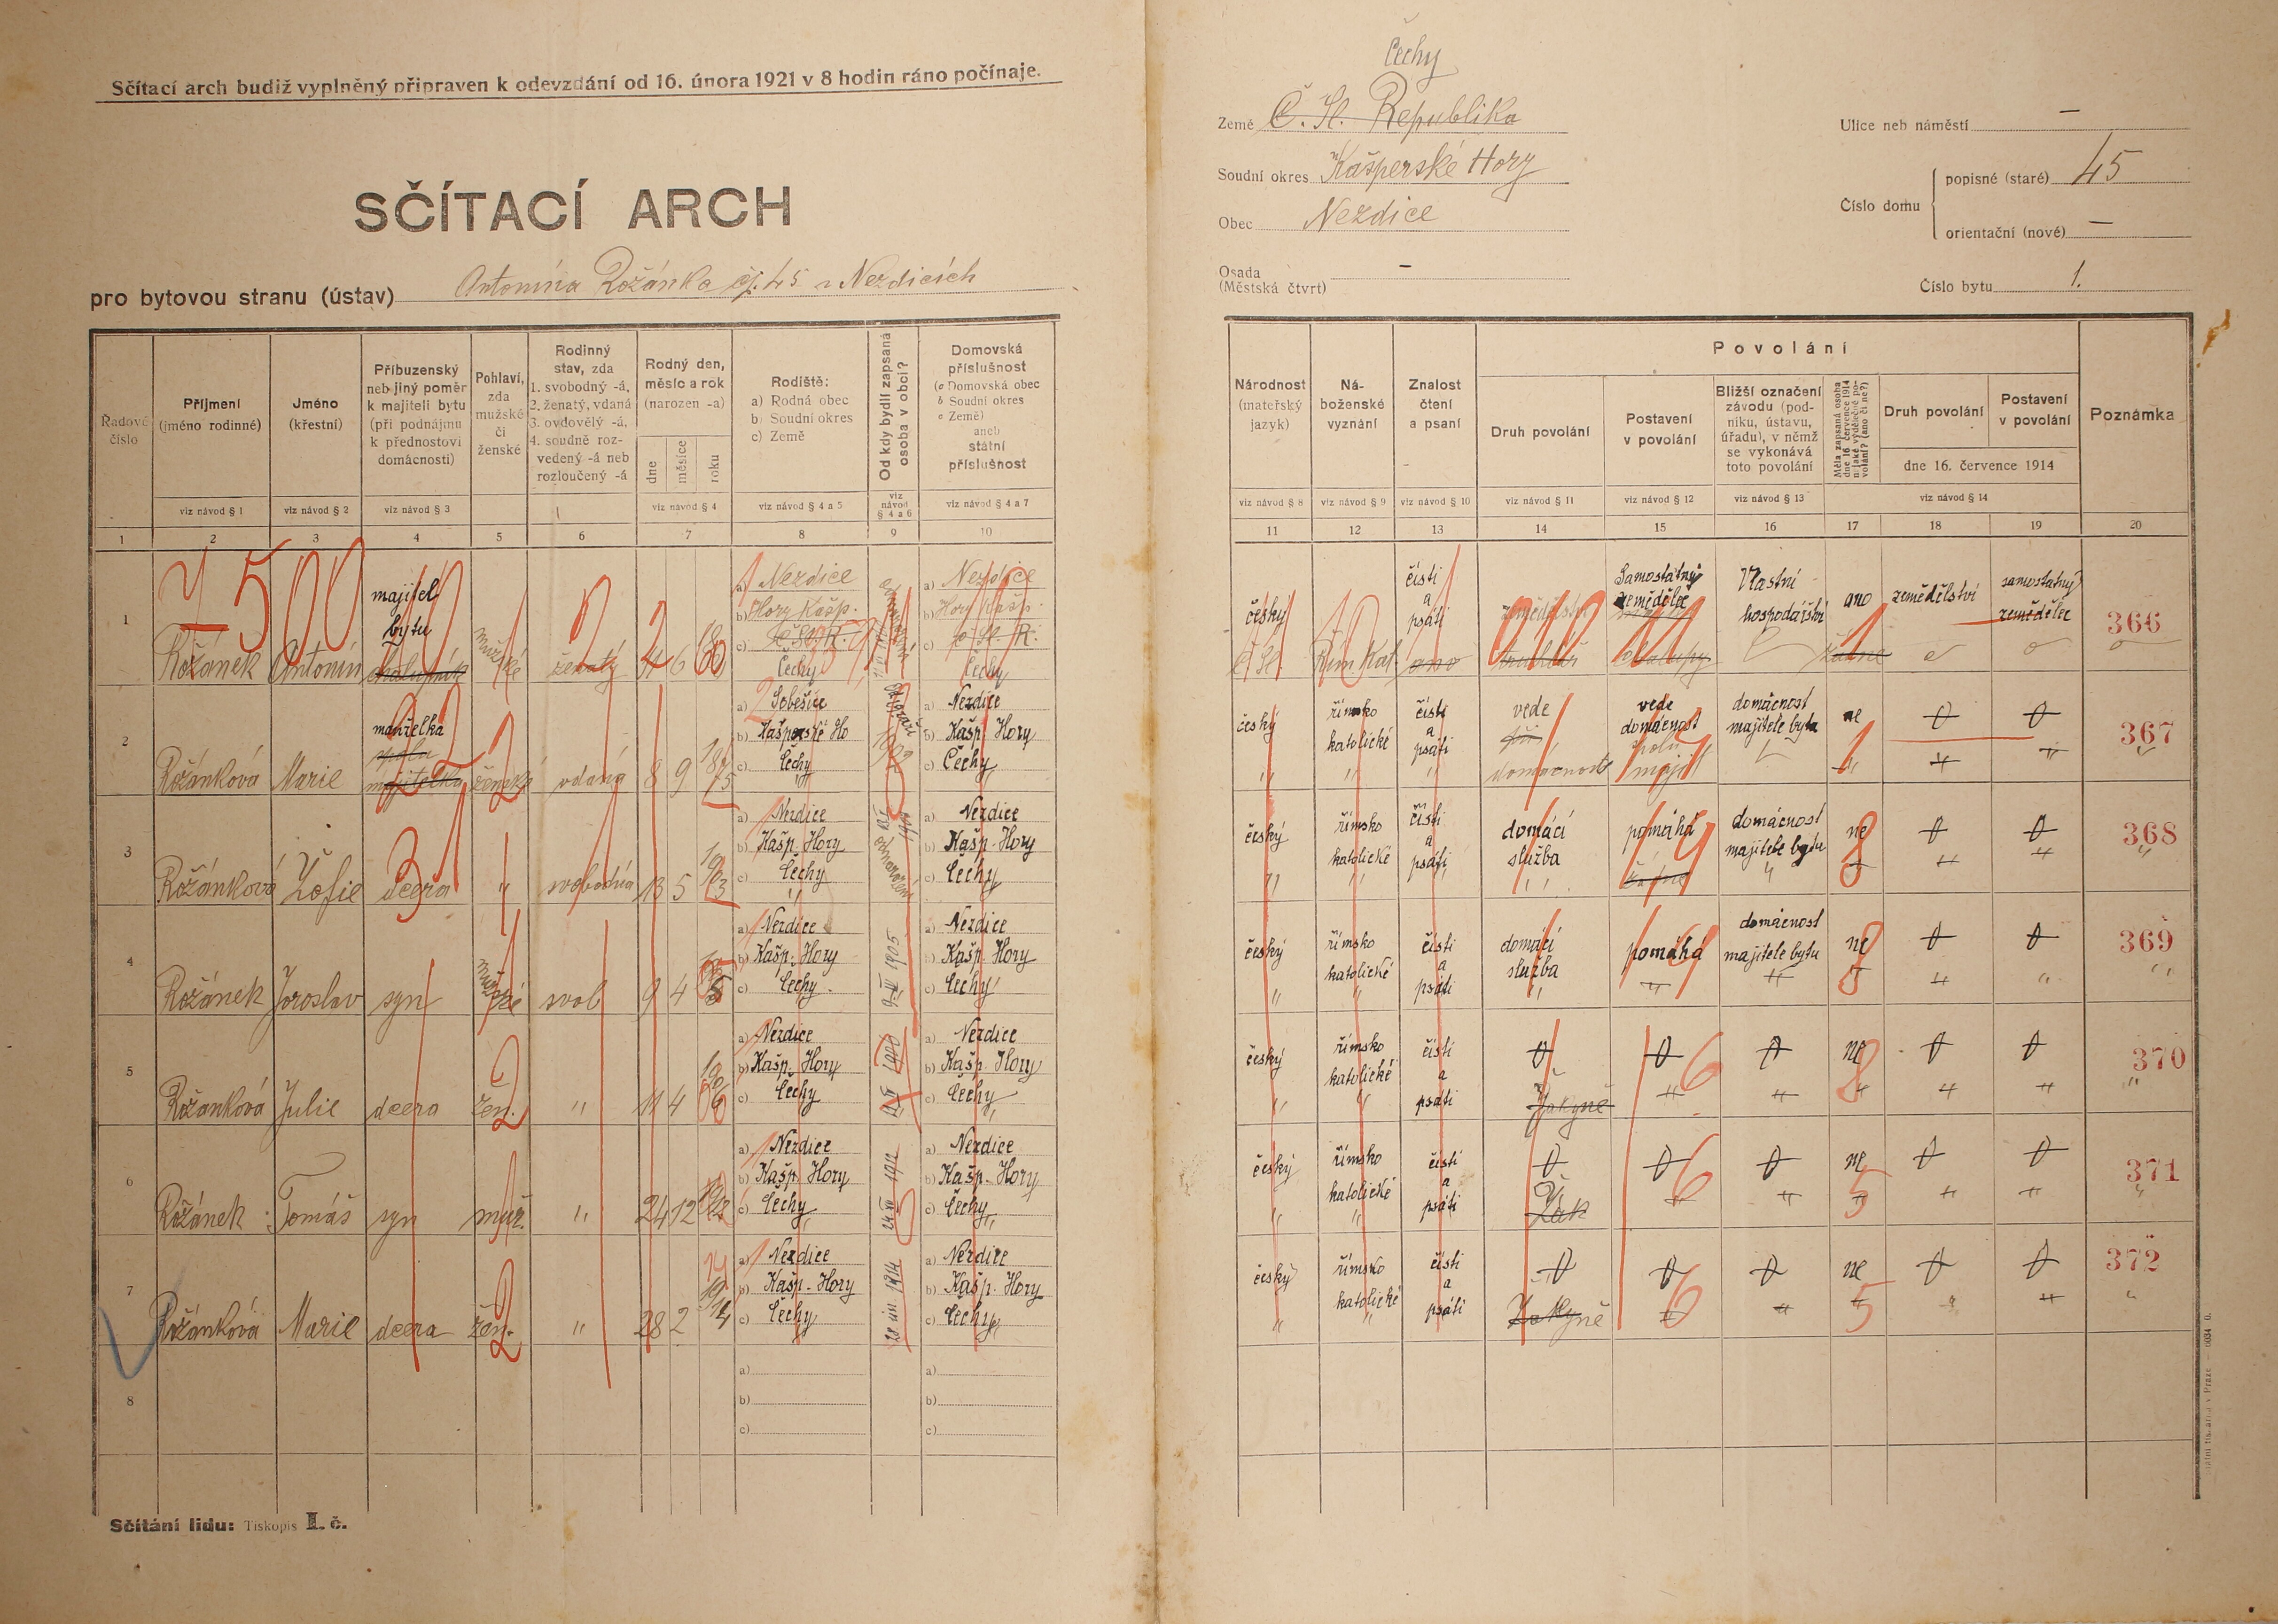 Sčítací arch budiž vyplněný připraven k odevzdání od 16. února 1921 v 8 hodin ráno počínaje.
SČÍTACÍ ARCH
pro bytovou stranu (ústav) Antonína Rožánka čp. 45 v Nezdicích
Čechy
Země Č. Sl. Republika
Soudní okres Kašperské Hory
Obec Nezdice
Osada –
(Městská čtvrt)
Ulice neb náměstí –
Číslo domu
popisné (staré) 45
orientační (nové) –
Číslo bytu 1.
Řadové číslo
Příjmení (jméno rodinné)
Jméno (křestní)
Příbuzenský neb jiný poměr k majiteli bytu (při podnájmu k přednostovi domácnosti)
Pohlaví, zda mužské či ženské
Rodinný stav, zda 1. svobodný -á, 2. ženatý, vdaná 3. ovdovělý -á, 4. soudně rozvedený -á neb rozloučený -á
Rodný den, měsíc a rok (narozen -a)
dne měsíce roku
Rodiště: a) Rodná obec b) Soudní okres c) Země
Od kdy bydlí zapsaná osoba v obci?
Domovská příslušnost (a Domovská obec b Soudní okres c Země) aneb státní příslušnost
viz návod § 1 viz návod § 2 viz návod § 3 viz návod § 4 viz návod § 4 a 5 viz návod § 4 a 6 viz návod § 4 a 7
1 2 3 4 5 6 7 8 9 10
Národnost (mateřský jazyk)
Náboženské vyznání
Znalost čtení a psaní
Povolání
Druh povolání
Postavení v povolání
Bližší označení závodu (podniku, ústavu, úřadu), v němž se vykonává toto povolání
Měla zapsaná osoba dne 16. července 1914 nějaké výdělečné povolání? (ano či ne?)
Druh povolání
Postavení v povolání
dne 16. července 1914
Poznámka
viz návod § 8 viz návod § 9 viz návod § 10 viz návod § 11 viz návod § 12 viz návod § 13 viz návod § 14
11 12 13 14 15 16 17 18 19 20
500
1 Rožánek Antonín majitel bytu mužské ženatý 4 6
a) Nezdice
b) Hory Kašp.
c) Č. Sl. R.
Čechy
a) Nezdice
b) Hory Kašp.
c) Č. Sl. R.
Čechy
český Č Sl. Řím. Kat. čísti a psáti ano zemědělství truhlář Samostatný zemědělec chalupy Vlastní hospodářství ano žádné zemědělství samostatný zemědělec 366
2 Rožánková Marie manželka majitelka ženské vdaná 8 9 1875
a) Soběšice
b) Kašperské Ho
c) Čechy
1902
a) Nezdice
b) Kašp. Hory
c) Čechy
český římsko katolické čísti a psáti vede domácnost vede domácnost domácnost majitele bytu ne 0 0 367
3 Rožánková Žofie dcera " svobodná 13 5 1903
a) Nezdice
b) Kašp. Hory
c) Čechy
od narození
a) Nezdice
b) Kašp. Hory
c) Čechy
český římsko katolické čísti a psáti domácí služba pomáhá domácnost majitele bytu ne 0 0 368
4 Rožánek Jaroslav syn mužské svob 9 4
a) Nezdice
b) Kašp. Hory
c) Čechy
9 IV 1905
a) Nezdice
b) Kašp. Hory
c) Čechy
český římsko katolické čísti a psáti domácí služba pomáhá domácnost majitele bytu ne 0 0 369
5 Rožánková Julie dcera žen. " 11 4
a) Nezdice
b) Kašp. Hory
c) Čechy
a) Nezdice
b) Kašp. Hory
c) Čechy
český římsko katolické čísti a psáti 0 Žákyně 0 0 ne 0 0 370
6 Rožánek Tomáš syn muž. " 24 12 1912
a) Nezdice
b) Kašp. Hory
c) Čechy
1912
a) Nezdice
b) Kašp. Hory
c) Čechy
český římsko katolické čísti a psáti 0 Žák 0 0 ne 0 0 371
7 Rožánková Marie dcera žen. " 28 2 1914
a) Nezdice
b) Kašp. Hory
c) Čechy
28 III 1914
a) Nezdice
b) Kašp. Hory
c) Čechy
český římsko katolické čísti a psáti 0 Žákyně 0 0 ne 0 0 372
8
a)
b)
c)
a)
b)
c)
Sčítání lidu: Tiskopis I. č.